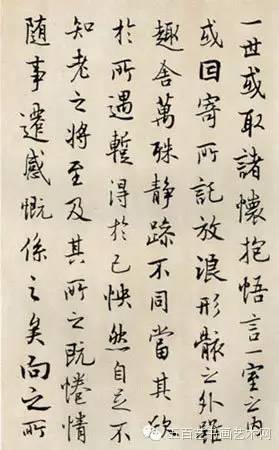 一世或取諸懷抱悟言一室之內
或因寄所託放浪形骸之外雖
趣舍萬殊靜躁不同當其欣
於所遇蹔得於己怏然自足不
知老之將至及其所之既惓情
隨事遷感慨係之矣向之所
五百艺书画艺术网